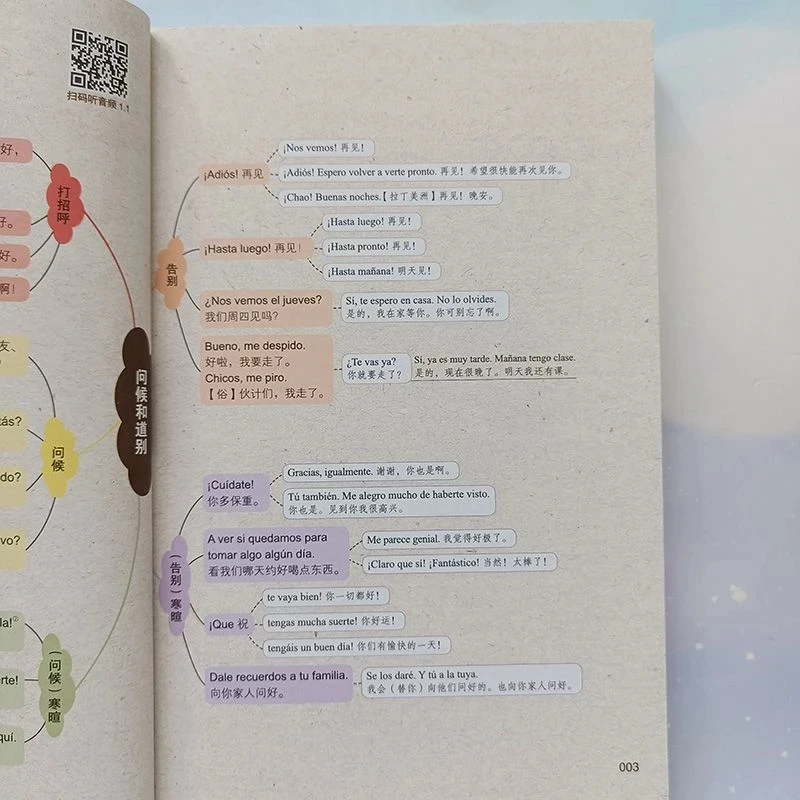 扫码听音频 1.1
好,
打招呼
好。
好。
啊!
友、
tás?
问候
do?
vo?
la!②
rte!
(问候)寒暄
quí.
问候和道别
告别
¡Adiós! 再见
¡Nos vemos! 再见!
¡Adiós! Espero volver a verte pronto. 再见! 希望很快能再次见你。
¡Chao! Buenas noches.【拉丁美洲】再见! 晚安。
¡Hasta luego! 再见!
¡Hasta luego! 再见!
¡Hasta pronto! 再见!
¡Hasta mañana! 明天见!
¿Nos vemos el jueves?
我们周四见吗?
Sí, te espero en casa. No lo olvides.
是的, 我在家等你。你可别忘了啊。
Bueno, me despido.
好啦, 我要走了。
Chicos, me piro.
【俗】伙计们, 我走了。
¿Te vas ya?
你就要走了?
Sí, ya es muy tarde. Mañana tengo clase.
是的, 现在很晚了。明天我还有课。
(告别)寒暄
¡Cuídate!
你多保重。
Gracias, igualmente. 谢谢, 你也是啊。
Tú también. Me alegro mucho de haberte visto.
你也是。见到你我很高兴。
A ver si quedamos para
tomar algo algún día.
看我们哪天约好喝点东西。
Me parece genial. 我觉得好极了。
¡Claro que sí! ¡Fantástico! 当然! 太棒了!
¡Que 祝
te vaya bien! 你一切都好!
tengas mucha suerte! 你好运!
tengáis un buen día! 你们有愉快的一天!
Dale recuerdos a tu familia.
向你家人问好。
Se los daré. Y tú a la tuya.
我会(替你)向他们问好的。也向你家人问好。
003